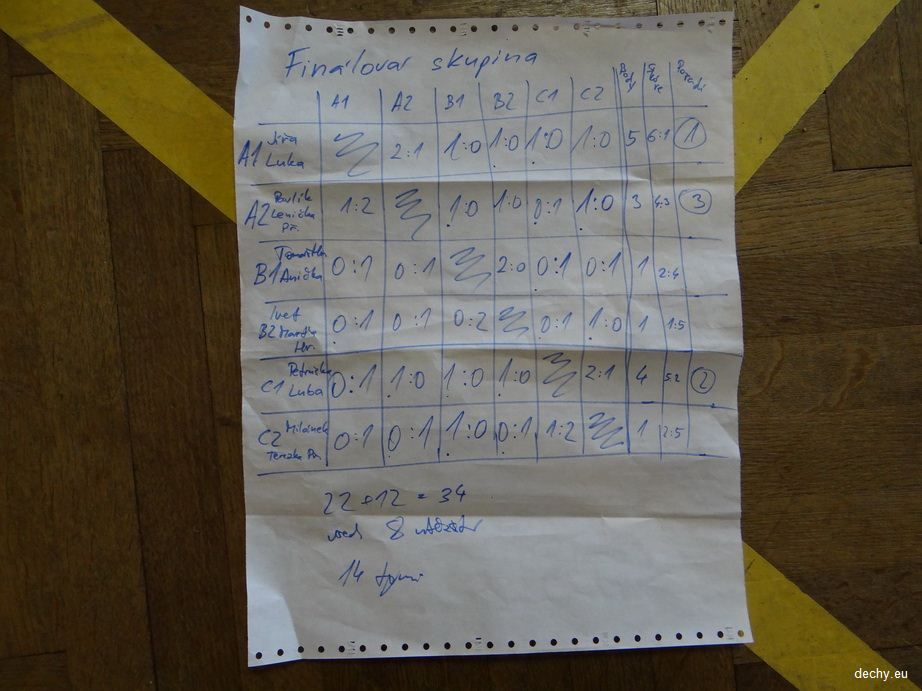 Finálová skupina
A1 A2 B1 B2 C1 C2 Body Skóre Pořadí
A1 Jirka Luka 2:1 1:0 1:0 1:0 1:0 5 6:1 1
A2 Pavlík Lenička Př. 1:2 1:0 1:0 0:1 1:0 3 4:3 3
B1 Anička 0:1 0:1 2:0 0:1 0:1 1 2:4
B2 Hr. 0:1 0:1 0:2 0:1 1:0 1 1:5
C1 Luba 0:1 1:0 1:0 1:0 2:1 4 5:2 2
C2 Milánek Terezka Pr. 0:1 0:1 1:0 0:1 1:2 1 2:5
22 + 12 = 34
8
14
dechy.eu